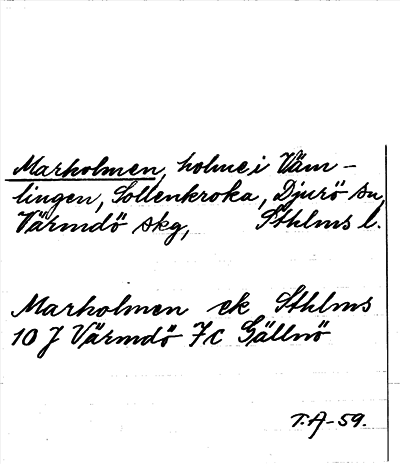 Marholmen, holme i Väm-
lingen, Sollenkroka, Djurö sn,
Värmdö skg, Sthlms l.
Marholmen ek Sthlms
10 J Värmdö 7c Gällnö
T.A-59.